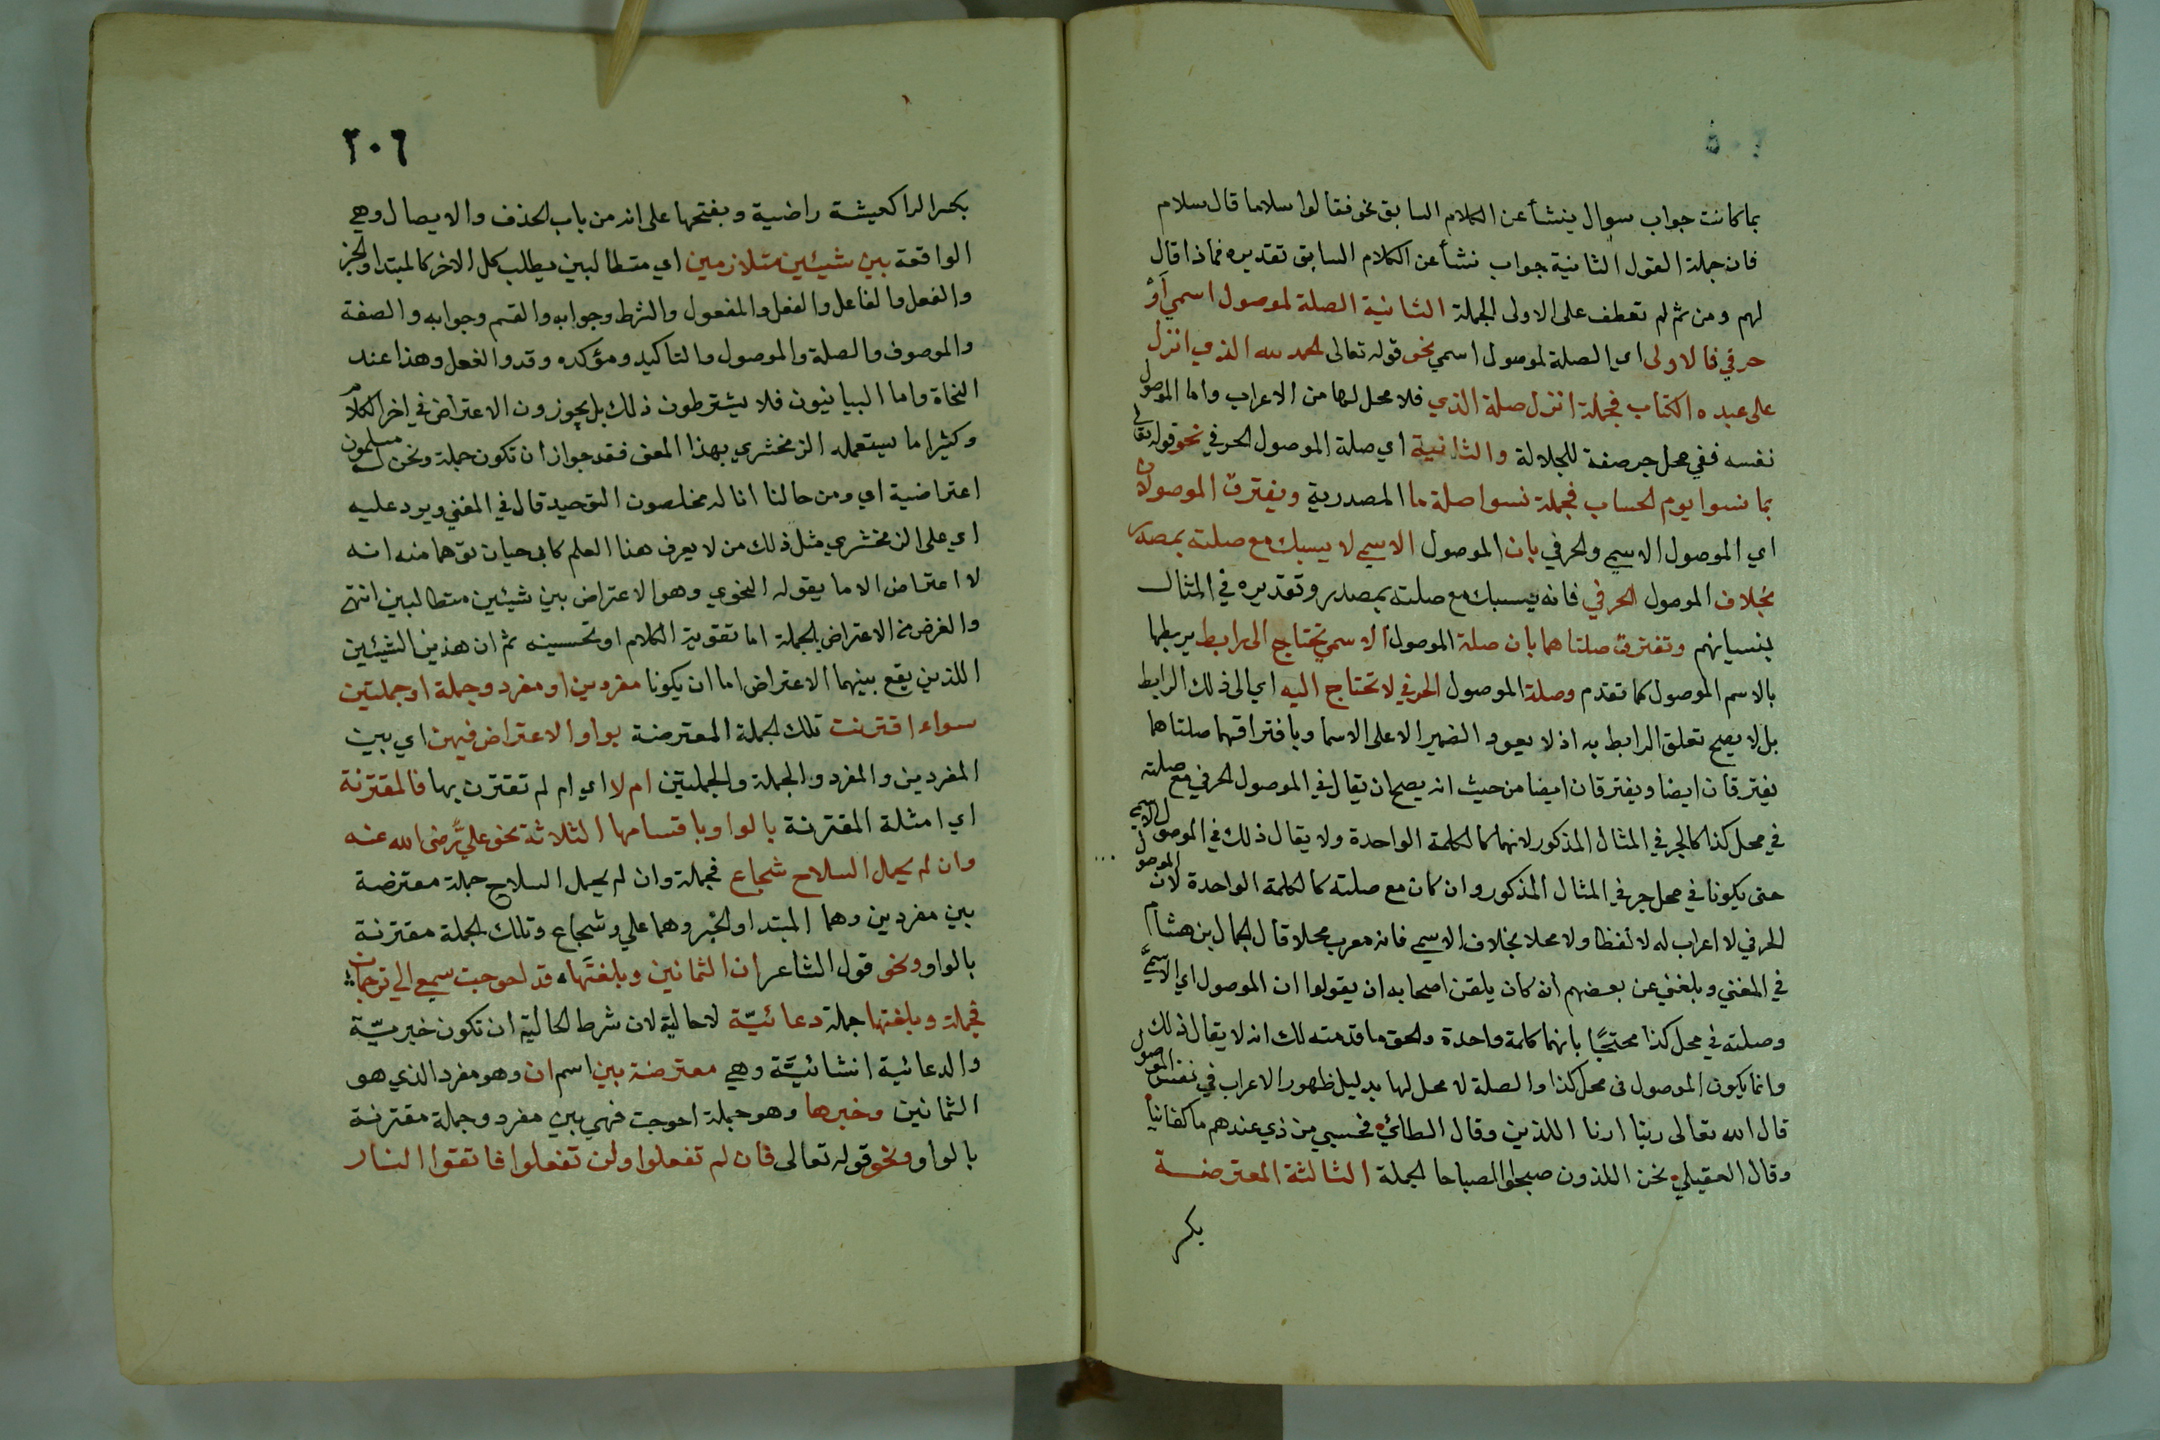 بما كانت جواب سوال ينشأ عن الكلام السابق نحو فقالوا سلاما قال سلام
فان جملة القول الثانية جواب نشأ عن الكلام السابق تقديره فماذا قال
لهم ومن ثم لم تعطف على الاولى الجملة الثانية الصلة لموصول اسمي أو
حرفي فالاولى اي الصلة لموصول اسمي نحو قوله تعالى الحمد لله الذي انزل
على عبده الكتاب فجملة انزل صلة الذي فلا محل لها من الاعراب واما الموصول
نفسه ففي محل جر صفة للجلالة والثانية اي صلة الموصول الحرفي نحو قوله تعالى
بما نسوا يوم الحساب فجملة نسوا صلة ما المصدرية ويفترق الموصولان
اي الموصول الاسمي والحرفي بان الموصول الاسمي لا يسبك مع صلته بمصدر
بخلاف الموصول الحرفي فانه يسبك مع صلته بمصدر وتقديره في المثال
بنسيانهم وتفترق صلتاهما بان صلة الموصول الاسمي تحتاج الى رابط يربطها
بالاسم الموصول كما تقدم وصلة الموصول الحرفي لا تحتاج اليه اي الى ذلك الرابط
بل لا يصح تعلق الرابط به اذ لا يعود الضمير الا على الاسما وبافتراقهما صلتاهما
يفترقان ايضا ويفترقان ايضا من حيث انه يصح ان يقال في الموصول الحرفي مع صلته
في محل كذا كالجر في المثال المذكور لانهما كالكلمة الواحدة ولا يقال ذلك في الموصول الاسمي
حتى يكونا في محل جر في المثال المذكور وان كان مع صلته كالكلمة الواحدة لان الموصول
الحرفي لا اعراب له لا لفظا ولا محلا بخلاف الاسمي فانه معرب محلا قال الجمال بن هشام
في المغني وبلغني عن بعضهم أنه كان يلقن اصحابه ان يقولوا ان الموصول اي الاسمي
وصلته في محل كذا محتجًا بانهما كلمة واحدة والحق ما قدمته لك انه لا يقال ذلك
وانما يكون الموصول في محل كذا والصلة لا محل لها بدليل ظهور الاعراب في نفس الموصول
قال الله تعالى ربنا ارنا اللذين وقال الطائي فحسبي من ذي عندهم ما كفانيا
وقال العقيلي نحن اللذون صبحوا الصباحا الجملة الثالثة المعترضة
بكسر
٢٠٦
بكسر الرا كعيشة راضية وبفتحها على انه من باب الحذف والايصال وهي
الواقعة بين شيئين متلازمين اي متطالبين يطلب كل الاخر كالمبتدا والخبر
والفعل والفاعل والفعل والمفعول والشرط وجوابه والقسم وجوابه والصفة
والموصوف والصلة والموصول والتاكيد ومؤكده وقد والفعل وهذا عند
النحاة واما البيانيون فلا يشترطون ذلك بل يجوزون الاعتراض في اخر الكلام
وكثيرا ما يستعمله الزمخشري بهذا المعنى فقد جواز ان تكون جملة ونحن له مسلمون
اعتراضية اي ومن حالنا انا له مخلصون التوحيد قال في المغني ويرد عليه
اي على الزمخشري مثل ذلك من لا يعرف هذا العلم كابي حيان توهما منه انه
لا اعتراض الا ما يقوله النحوي وهو الاعتراض بين شيئين متطالبين انتهى
والغرض من الاعتراض بالجملة اما تقوية الكلام او تحسينه ثم ان هذين الشيئين
اللذين يقع بينهما الاعتراض اما ان يكونا مفردين او مفرد وجملة او جملتين
سواء اقترنت تلك الجملة المعترضة بواو الاعتراض فيهن اي بين
المفردين والمفرد والجملة والجملتين ام لا اي ام لم تقترن بها فالمقترنة
اي امثلة المقترنة بالواو باقسامها الثلاثة نحو عليٌّ رضى الله عنه
وان لم يحمل السلاح شجاع فجملة وان لم يحمل السلاح جملة معترضة
بين مفردين وهما المبتدا والخبر وهما علي وشجاع وتلك الجملة مقترنة
بالواو ونحو قول الشاعر ان الثمانين وبلغتَها قد احوجت سمعي الى ترجمان
فجملة وبلغتها جملة دعائيّة لا حالية لان شرط الحالية ان تكون خبريّة
والدعائية انشائيَّة وهي معترضة بين اسم ان وهو مفرد الذي هو
الثمانين وخبرها وهو جملة احوجت فهي بين مفرد وجملة مقترنة
بالواو ونحو قوله تعالى فان لم تفعلوا ولن تفعلوا فاتقوا النار